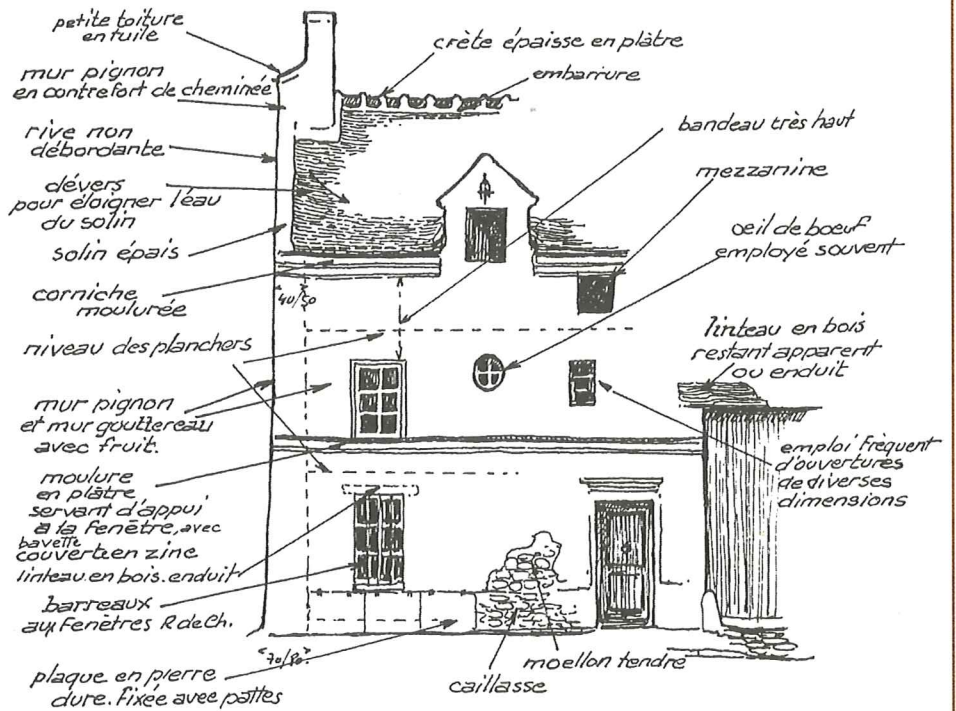 petite toiture
en tuile
mur pignon
en contrefort de cheminée
rive non
débordante
dévers
pour éloigner l'eau
du solin
solin épais
corniche
moulurée
40/50
niveau des planchers
mur pignon
et mur gouttereau
avec fruit.
moulure
en plâtre
servant d'appui
à la fenêtre, avec
bavette
couverte en zinc
linteau en bois enduit
barreaux
aux fenêtres R de Ch.
70/80
plaque en pierre
dure. fixée avec pattes
crète épaisse en plâtre
embarrure
bandeau très haut
mezzanine
oeil de boeuf
employé souvent
linteau en bois
restant apparent
ou enduit
emploi fréquent
d'ouvertures
de diverses
dimensions
moellon tendre
caillasse